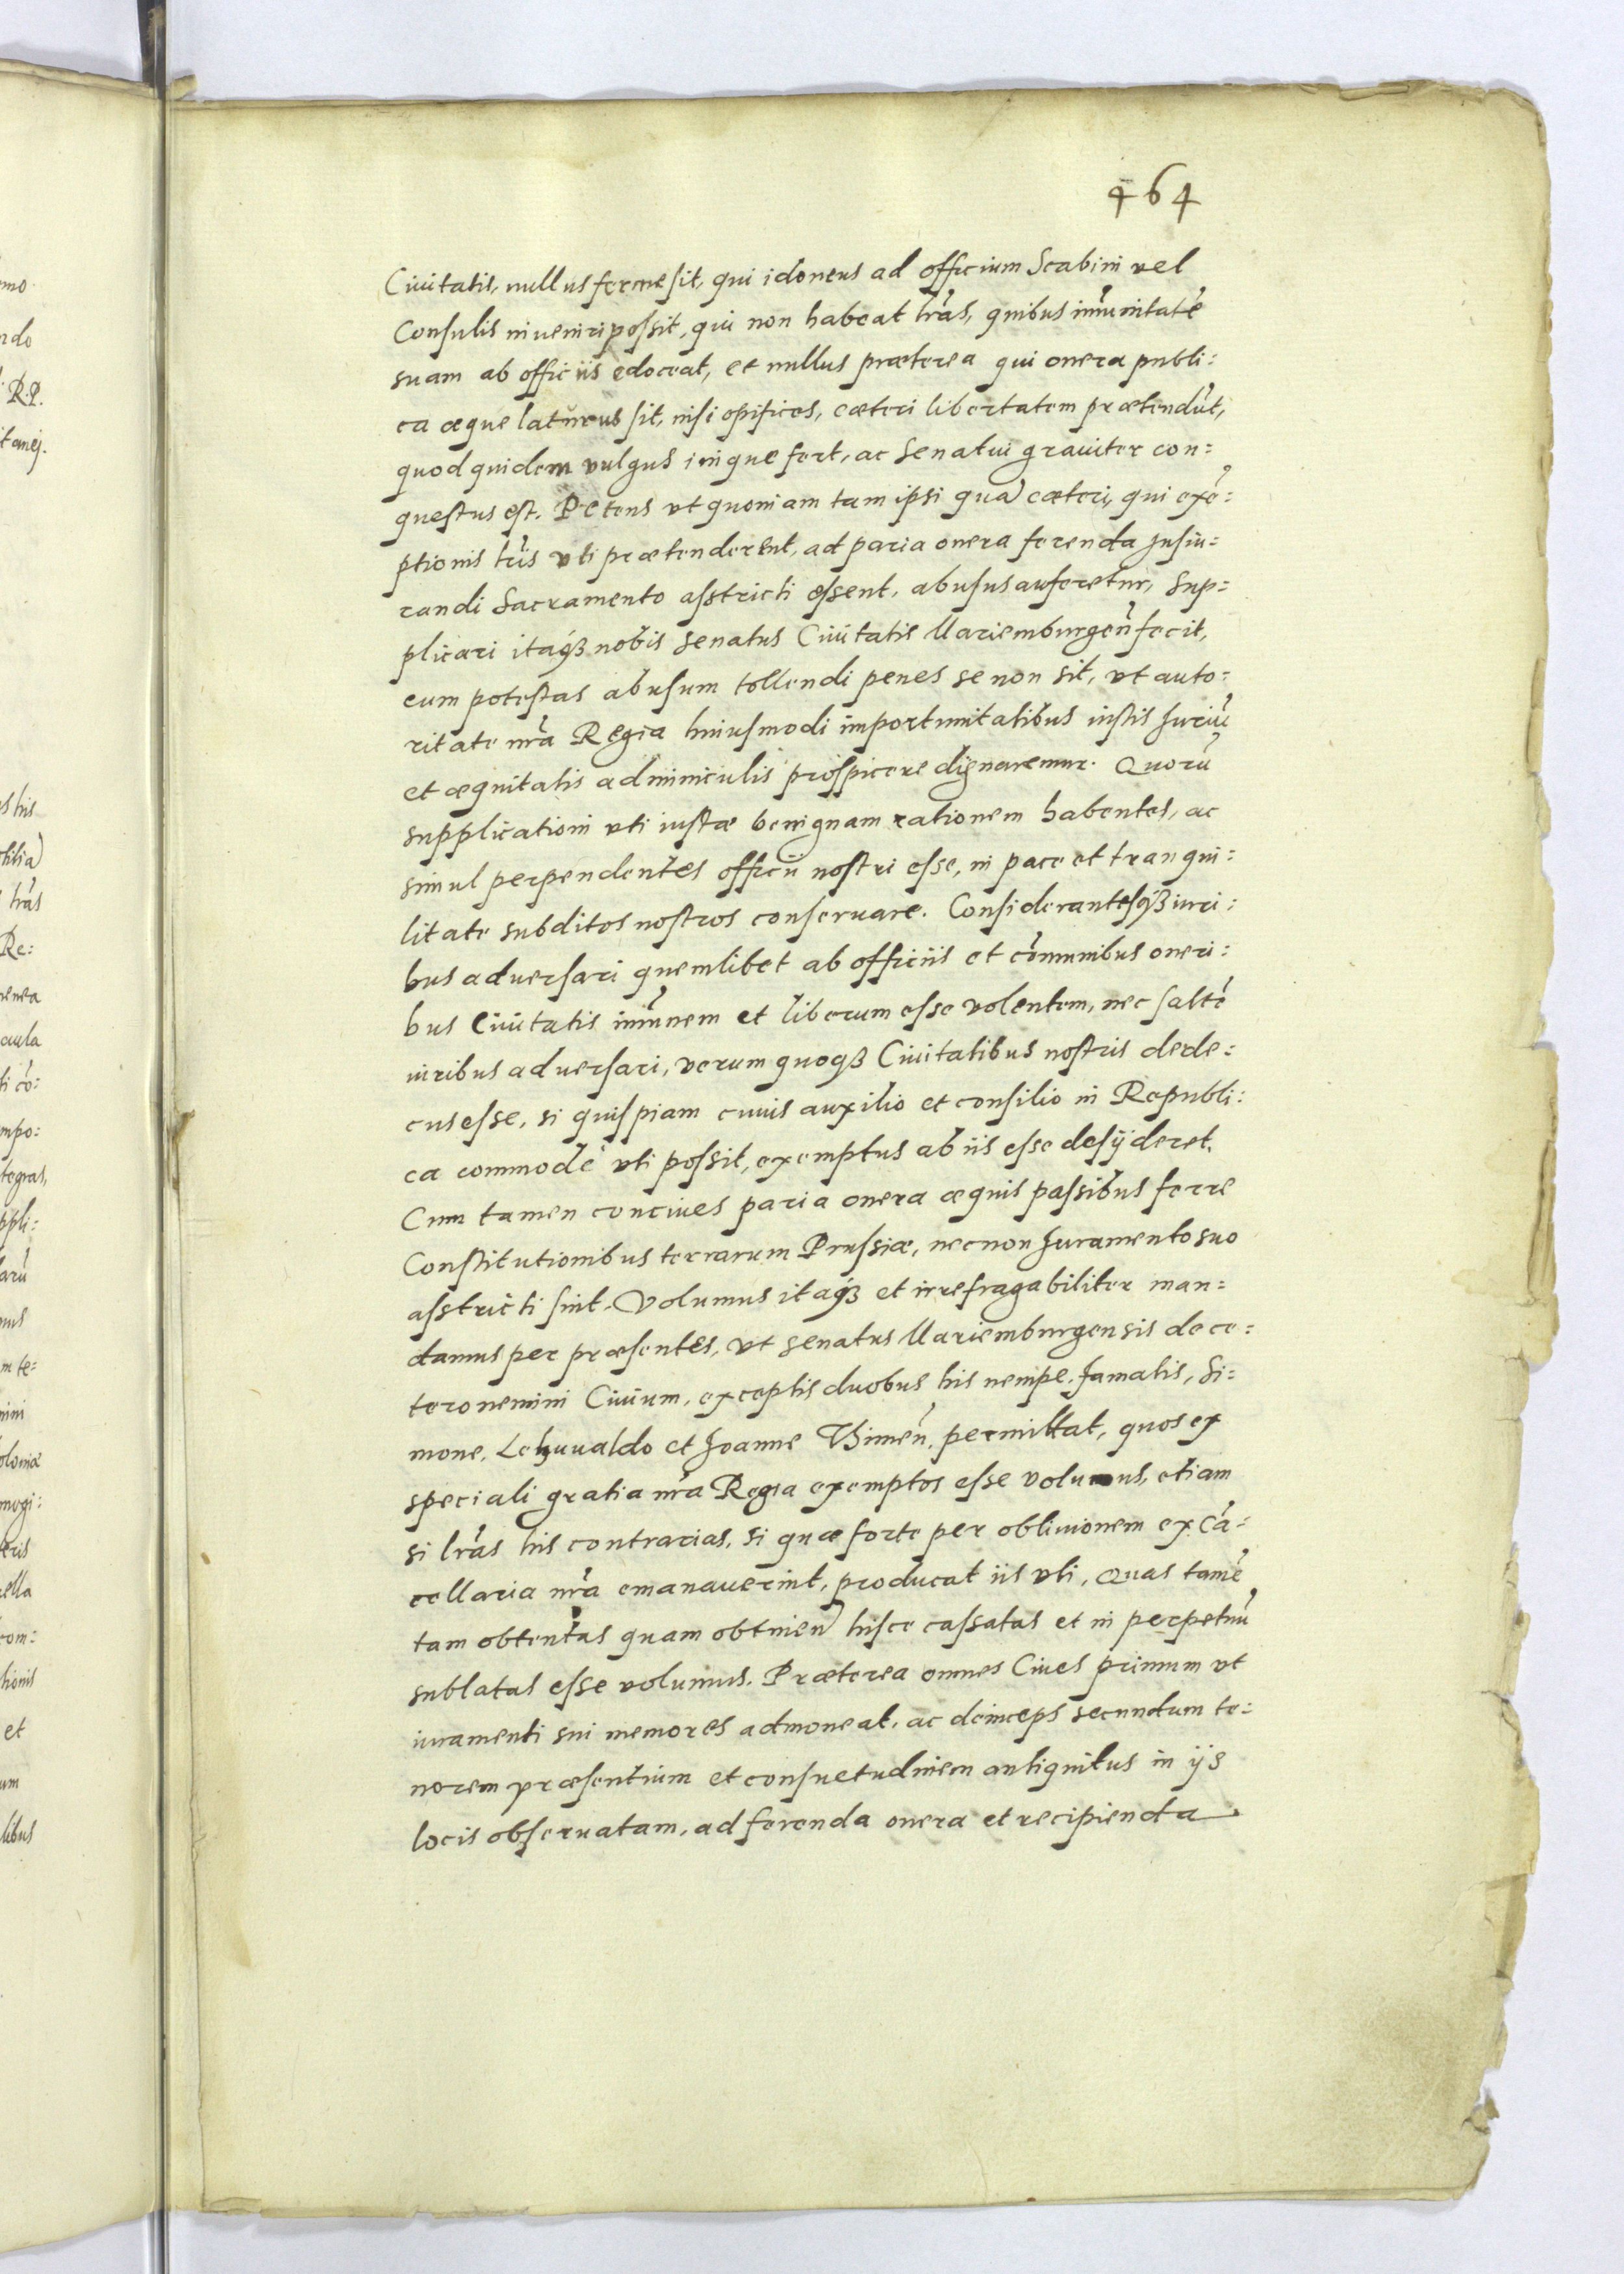 464
Ciuitatis, nullus ferme sit, qui idoneus ad officium Scabini vel
Consulis inueniri possit, qui non habeat lr̃as, quibus im̃unitatẽ
suam ab officiis edoceat, et nullus præterea qui onera publi:
ca æque laturus sit, nisi opifices, cæteri libertatem prætendũt,
quod quidem vulgus inique fert, ac Senatui grauiter con:
questus est. Petens vt quoniam tam ipsi quã cæteri, qui exẽ:
ptionis lr̃is vti prætenderent, ad paria onera ferenda Jusiu:
randi Sacramento asstricti essent, abusus auferetur, Sup:
plicari itaq́ꝫ nobis Senatus Ciuitatis Mariemburgeñ fecit,
cum potestas abusum tollendi penes se non sit, vt auto:
ritate nr̃a Regia huiusmodi importunitatibus iustis Juriũ
et æquitatis adminiculis prospicere dignaremur. Quorũ
supplicationi vti iustæ benignam rationem habentes, ac
simul perpendentes officii nostri esse, in pace et tranqui:
litate subditos nostros conseruare. Considerantesq́ꝫ iuri:
bus aduersari quemlibet ab officiis et cõmunibus oneri:
bus Ciuitatis im̃unem et liberum esse volentem, nec saltẽ
iuribus aduersari, verum quoqꝫ Ciuitatibus nostris dede:
cus esse, si quispiam cuius auxilio et consilio in Republi:
ca commodè vti possit, exemptus ab iis esse desÿderet.
Cum tamen conciues paria onera æquis passibus ferre
Constitutionibus terrarum Prussiæ, necnon Juramento suo
asstricti sint. Volumus itaq́ꝫ et irrefragabiliter man:
damus per præsentes, vt Senatus Mariemburgensis de ce:
tero nemini Ciuium, exceptis duobus his nempe, famatis, Si:
mone, Lehuualdo et Joanne Thimeñ, permittat, quos ex
speciali gratia nr̃a Regia exemptos esse volumus, etiam
si lr̃as his contrarias, si quæ forte per obliuionem ex Cã:
cellaria nr̃a emanauerint, producat iis vti, Quas tamẽ
tam obtentas quam obtineñ hisce cassatas et in perpetuũ
sublatas esse volumus. Præterea omnes Ciues primum vt
iuramenti sui memores admoneat, ac deinceps secundum te:
norem præsentium et consuetudinem antiquitus in ijs
locis obseruatam, ad ferenda onera et recipienda